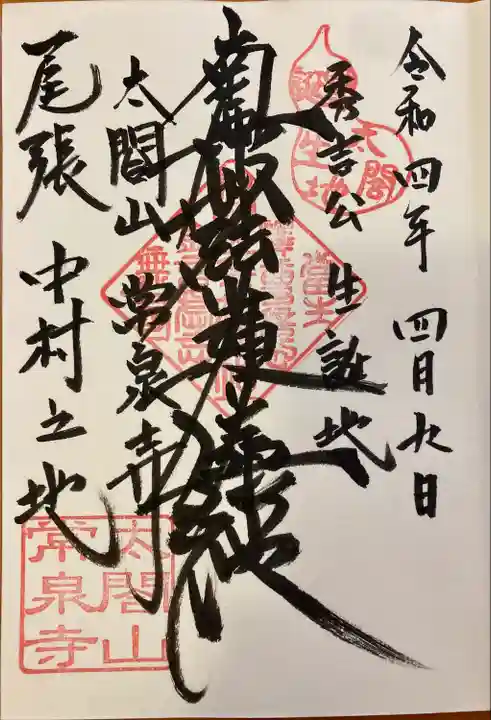 令和四年 四月九日
秀吉公 生誕地
太閤
誕生地
南無妙法蓮華経
太閤山 常泉寺
尾張 中村之地
太閤山
常泉寺